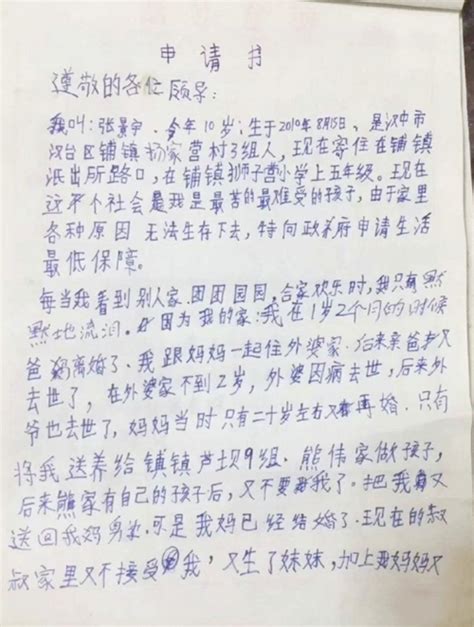 申请书
尊敬的各位领导:
我叫:张景宇.今年10岁;生于2010年8月15日、是汉中市
汉台区铺镇杨家营村3组人,现在寄住在铺镇
派出所路口,在铺镇狮子营小学上五年级。现在
这个社会是我是最苦的最难受的孩子,由于家里
各种原因 无法生存下去,特向政府申请生活
最低保障。
每当我看到别人家.团团园园,合家欢乐时,我只有默
默地流泪。因为我的家:我在1岁2个月的时候
爸妈离婚了、我跟妈妈一起住外婆家.后来亲爸爸又
去世了,在外婆家不到2岁,外婆因病去世,后来外
爷也去世了,妈妈当时只有二十岁左右又再婚.只有
将我送养给镇镇芦坝9组.熊伟家做孩子,
后来熊家有自己的孩子后,又不要我了。把我又
送回我妈身边.可是我妈已经结婚了.现在的叔
叔家里又不接受我,又生了妹妹,加上我妈妈又